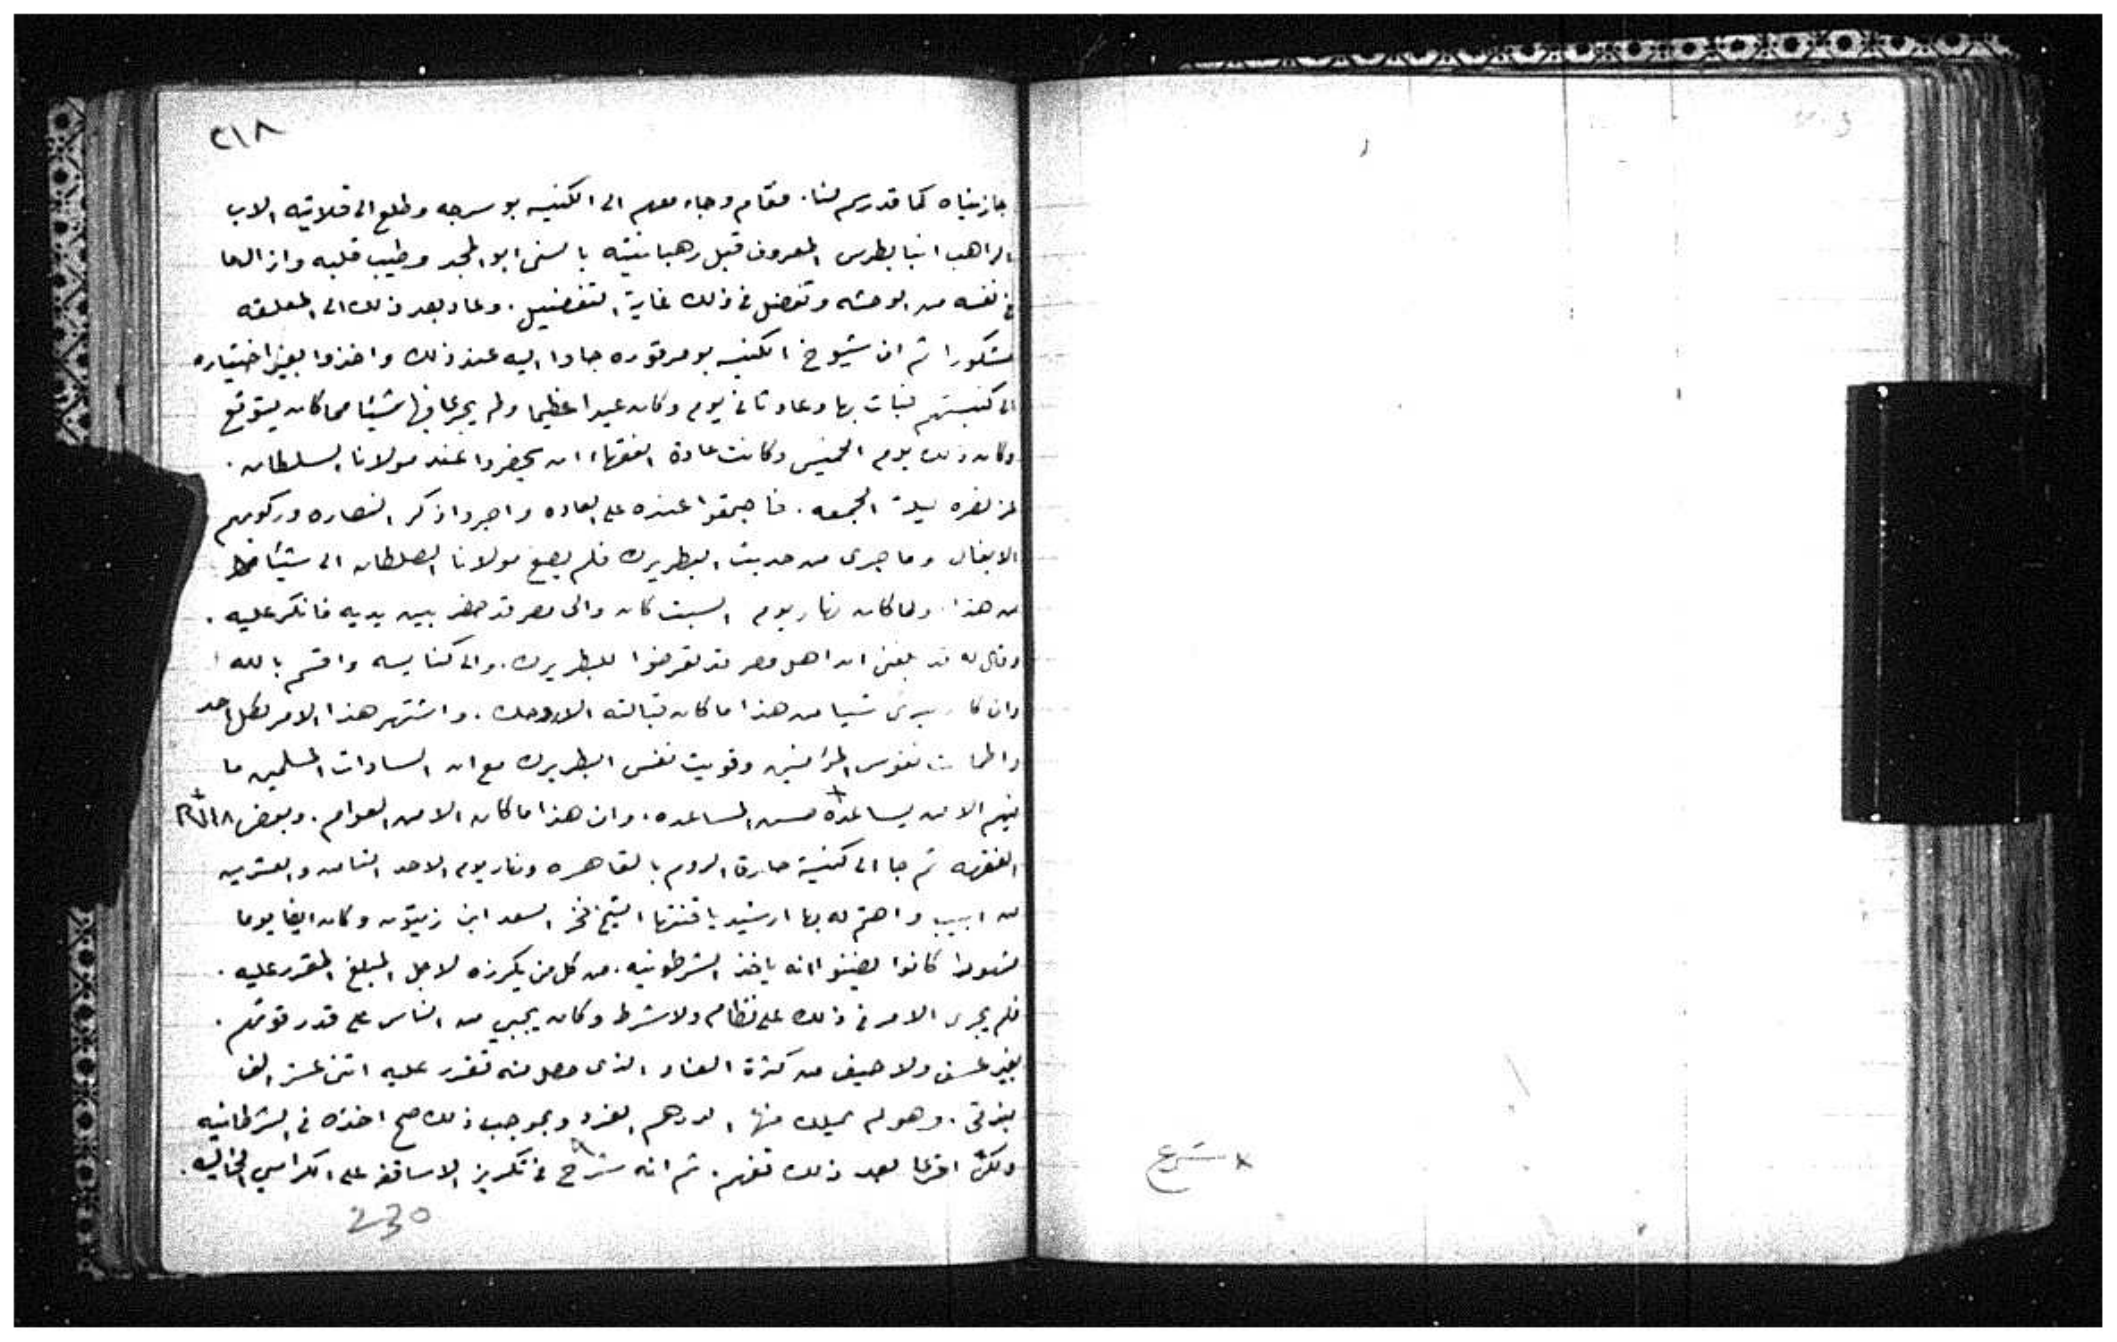 ٢١٨
جازيناه كما قد رسم لنا. فقام وجاء معهم الى الكنيسه بو سرجه وطلع الى قلاتيه الاب
الراهب انبا بطرس المعروف قبل رهبانيته بالسنى ابو المجد وطيب قلبه وازال ما
في نفسه من الوحشه وتفضل في ذلك غاية التفضيل. وعاد بعد ذلك الى المعلقه
مشكورا ثم ان شيوخ الكنيسه بو مرقوره جاوا اليه عند ذلك واخذوا بغير اختياره
الى كنيستهم فبات بها وعاد ثاني يوم وكان عيدا عظيما ولم يجر عا فيها شيئا مما كان يتوقع
وكان ذلك يوم الخميس وكانت عادة الفقهاء ان يحضروا عند مولانا السلطان.
ليلة الجمعه. فاجمعوا عنده على العاده واجروا ذكر النصاره وركوبهم
الابغال وما جرى من حديث البطريرك فلم يصغ مولانا الصلطان الى شيئا
من هذا. ولما كان نهار يوم السبت كان والى مصر قد حضر بين يديه فانكر عليه.
وقال له قد بلغني ان اهل مصر قد تعرضوا للبطريرك. والى كنايسه واقسم بالله
وان كان جرى شيا من هذا ما كان قبالته الا روحك. واشتهر هذا الامر لكل احد
نفوس وقويت نفس البطريرك مع ان السادات المسلمين ما
فيهم الا من يساعده حسن المساعده. وان هذا ما كان الا من العوام. وبعض
الفقهه ثم جا الى كنيسة حارة الروم بالقاهره ونهار يوم الاحد الثامن والعشرين
من ابيب واهتم له بها الشيخ فخر السعد ابن زيتون وكان ايضا يوما
مشهودا كانوا يضنوا انه ياخذ الشرطونيه. من كل من يكرزه لاجل المبلغ المقرر عليه.
فلم يجرى الامر في ذلك على نظام ولا شرط وكان يجبي من الناس على قدر قوتهم.
بغير عسف ولا حيف من كثرة العناد الذى حصل منه تقرر عليه اتنى عشر الف
بندقي. وهو لم يملك منها الدرهم الفرد وبموجب ذلك صح اخذه في الشرطانيه
ولكن بعد ذلك تفهم. ثم انه شرح في تكريز الاساقفه على الكراسي الخاليه.
230
x شرع